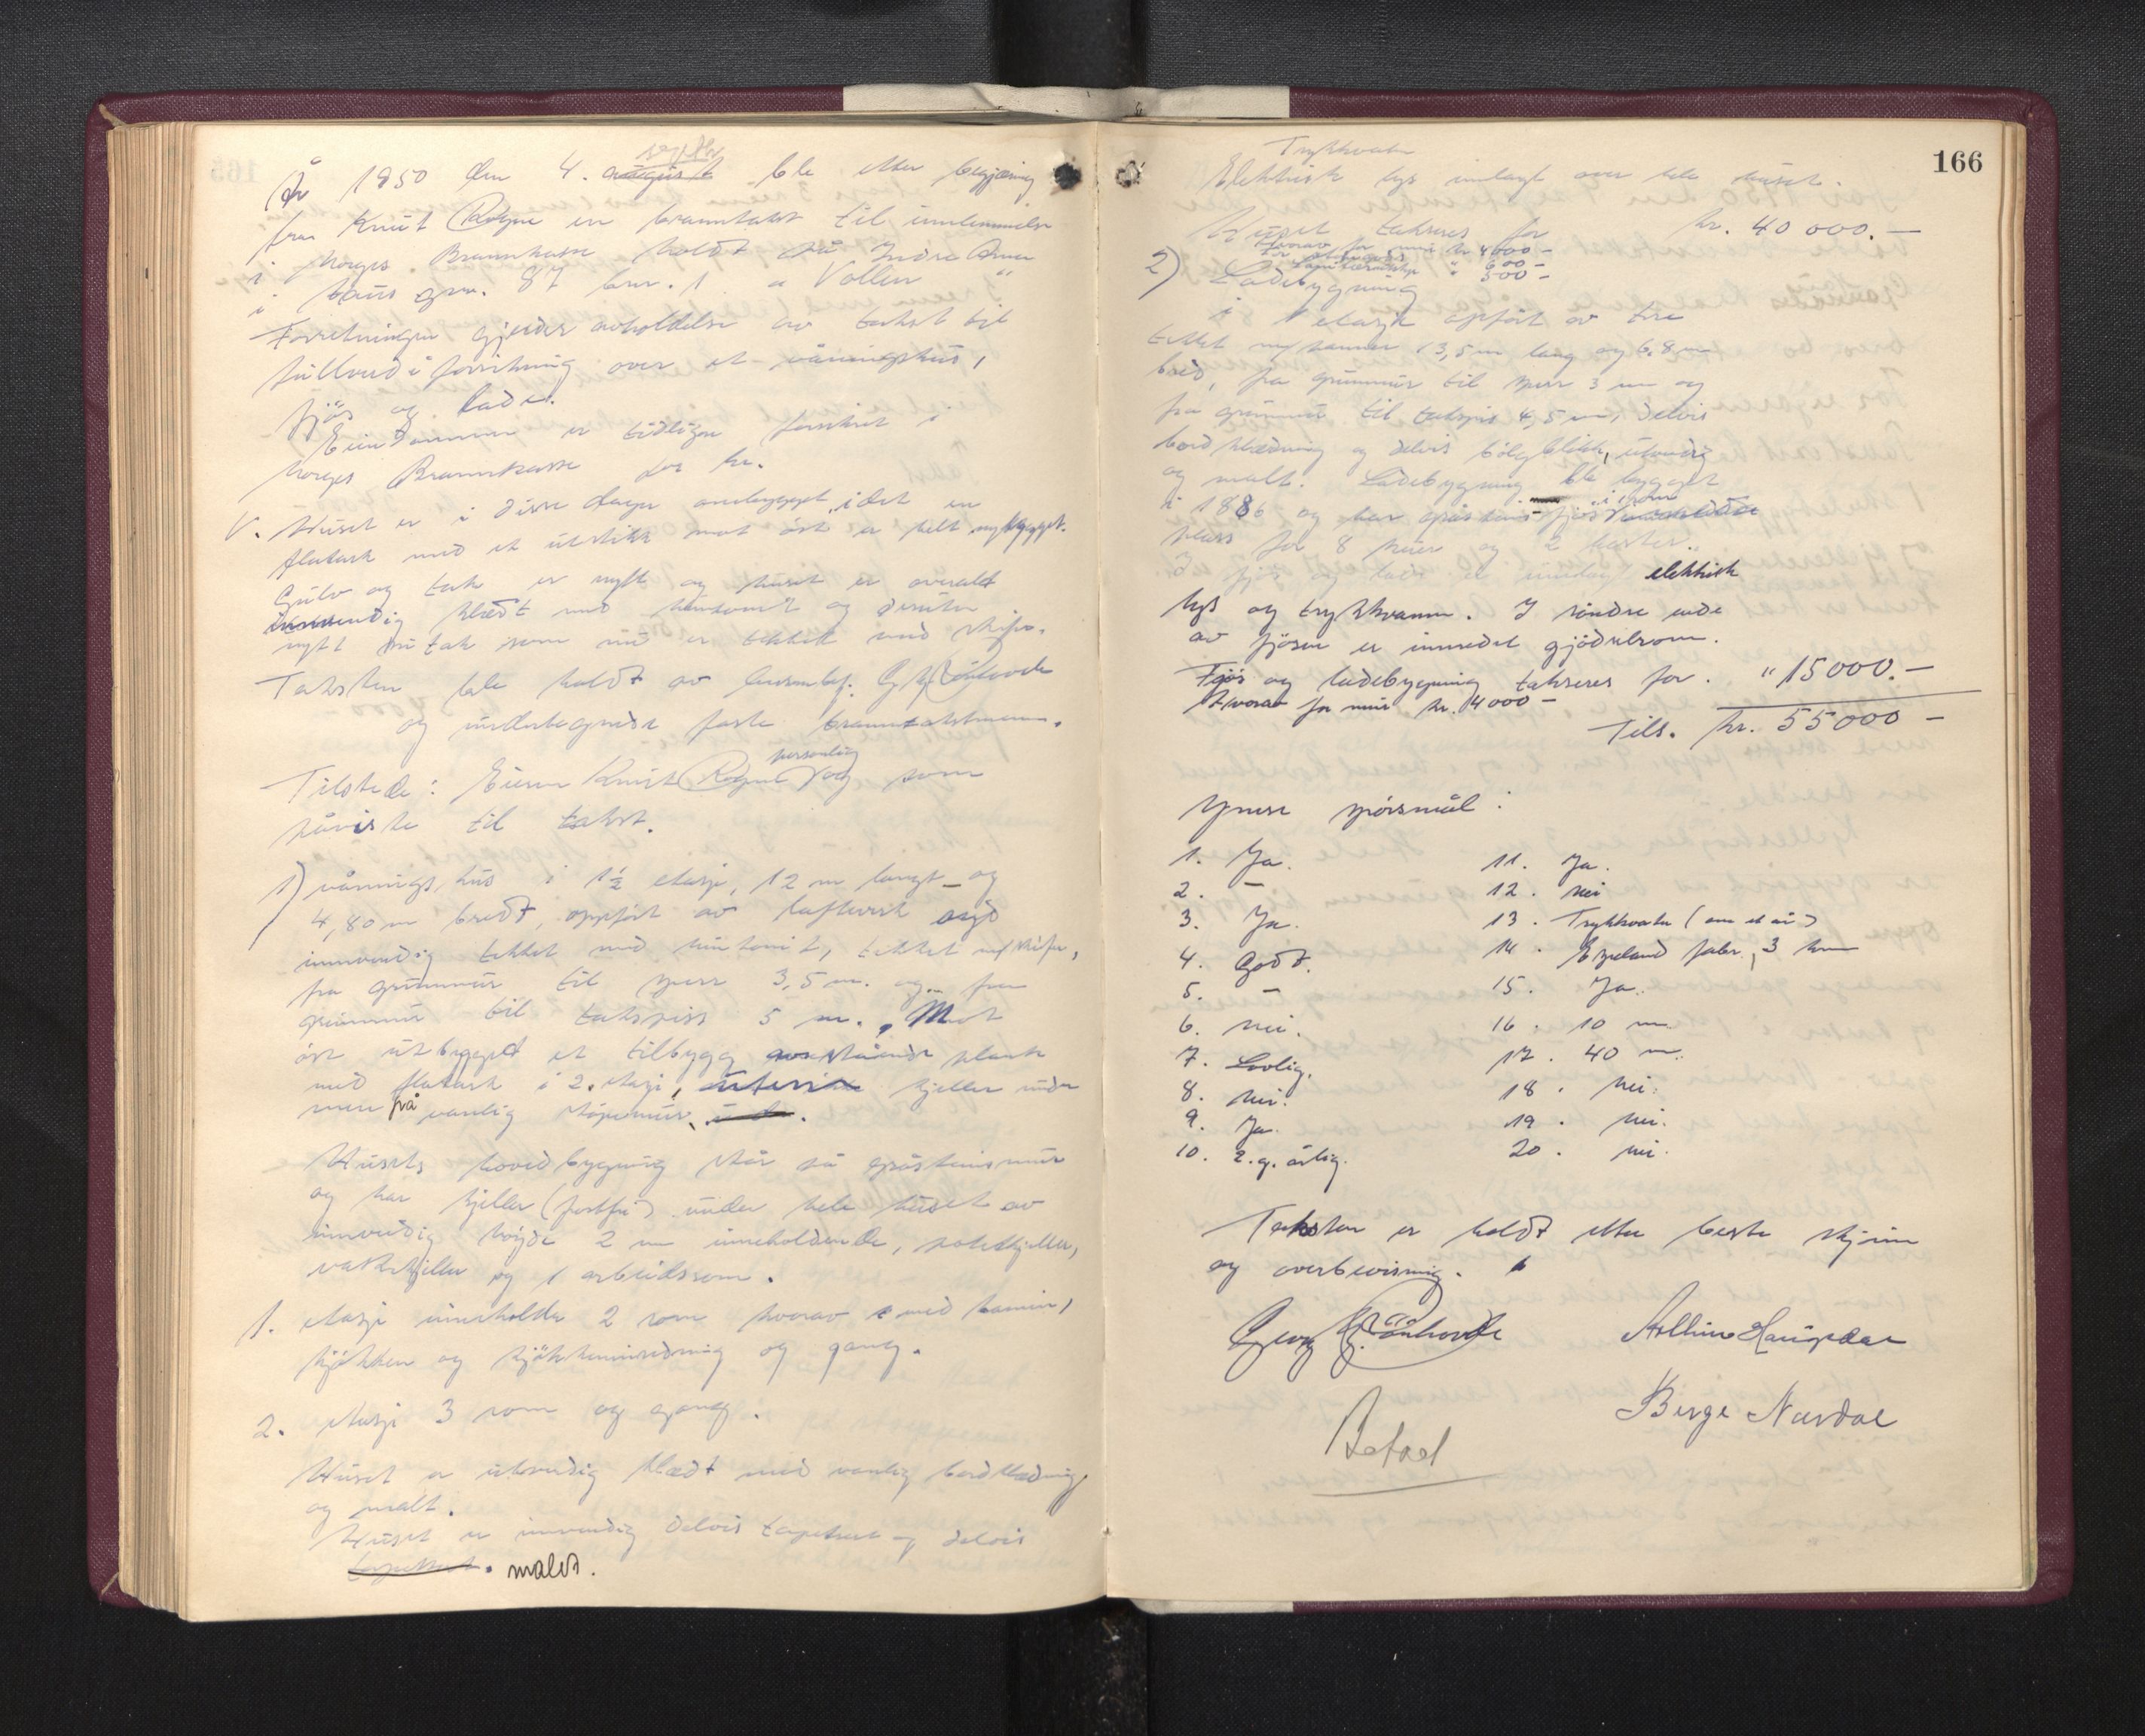 År 1950 den 4. august septbr ble etter begjæring
fra Knut Rogne en branntakst til innlemmelse
i Norges Brannkasse holdt på Indre Arna
i Haus gnr. 87 bnr. 1 a Vollen
Forretningen gjelder avholdelse av takst til
fullverdiforsikring over et våningshus,
fjøs og lade.
Eiendommen er tidligere forsikret i
Norges Brannkasse for kr.
V. Huset er i disse dager ombygget, idet en
flatark med et utstikk mot øst er helt nybygget.
Gulv og tak er nytt og huset er overalt
innvendig klædt med huntonit og
nytt tak som nu er tekket med skifer.
Taksten ble holdt av lensmbetj. G. Kj. Rönhovde
og undertegnede faste branntakstmenn.
Tilstede: Eieren Knut Rogne personlig og som
påviste til takst.
1) våningshus i 1½ etasje, 12 m langt og
4,80 m bredt, oppført av lafteverk
innvendig tekket med huntonit, tekket m/skifer,
fra grunnmur til sperr 3,5 m. og fra
grunnmur til takspiss 5 m. Mot
øst utbygget et tilbygg av stående plank
med flatark i 2. etasje, kjeller under
men på vanlig støpemur.
Husets hovedbygning står på gråsteinsmur
og har kjeller under hele huset av
innvendig høyde 2 m inneholdende, potetkjeller,
vaskekjeller og 1 arbeidsrom.
1. etasje inneholder 2 rom hvorav e med kamin,
kjøkken og kjøkkeninnredning og gang.
2. etasje 3 rom og gang.
Huset er utvendig klædt med vanlig bordklædning
og malt.
Huset er innvendig delvis tapetsert og delvis
malt.
166
Trykkvatn
Elektrisk lys innlagt over hele huset.
Huset takseres for kr. 40 000.—
Hvorav for mur kr 4000 —
" 600 —
" 500 —
2) Ladebygning
i 1 etasje oppført av tre
tekket m/panner 13,5 m lang og 6,8 m
bred, fra grunnmur til sperr 3 m og
fra grunnmur til takspis 4,5 m, delvis
bordklædning og delvis bølgeblikk, utvendig
og malt. Ladebygning ble bygget
i 1886 og har gråsteins fjøs i rom
plass for 8 kuer og 2 hester.
I fjøs og lade er innlag elektrisk
lys og trykkvann. I søndre ende
av fjøsen er innredet gjødselrom.
Fjøs og ladebygning takseres for. " 15000.—
Hvorav for mur kr. 4000 —
Tils. kr. 55000 —
Ymse spörsmål:
1. Ja. 11. Ja.
2. — 12. nei
3. Ja. 13. Trykkvatn (om et år)
4. Godt. 14. Espeland fabr., 3 km
5. — 15. Ja.
6. nei. 16. 10 m.
7. Lovlig. 17. 40 m.
8. nei. 18. nei.
9. Ja. 19. nei.
10. 2. g. årlig. 20. nei.
Taksten er holdt etter beste skjönn
og overbevisning.
Georg Kj. Rönhovde Arthur Haugedal
Berge Nævdal
Betael